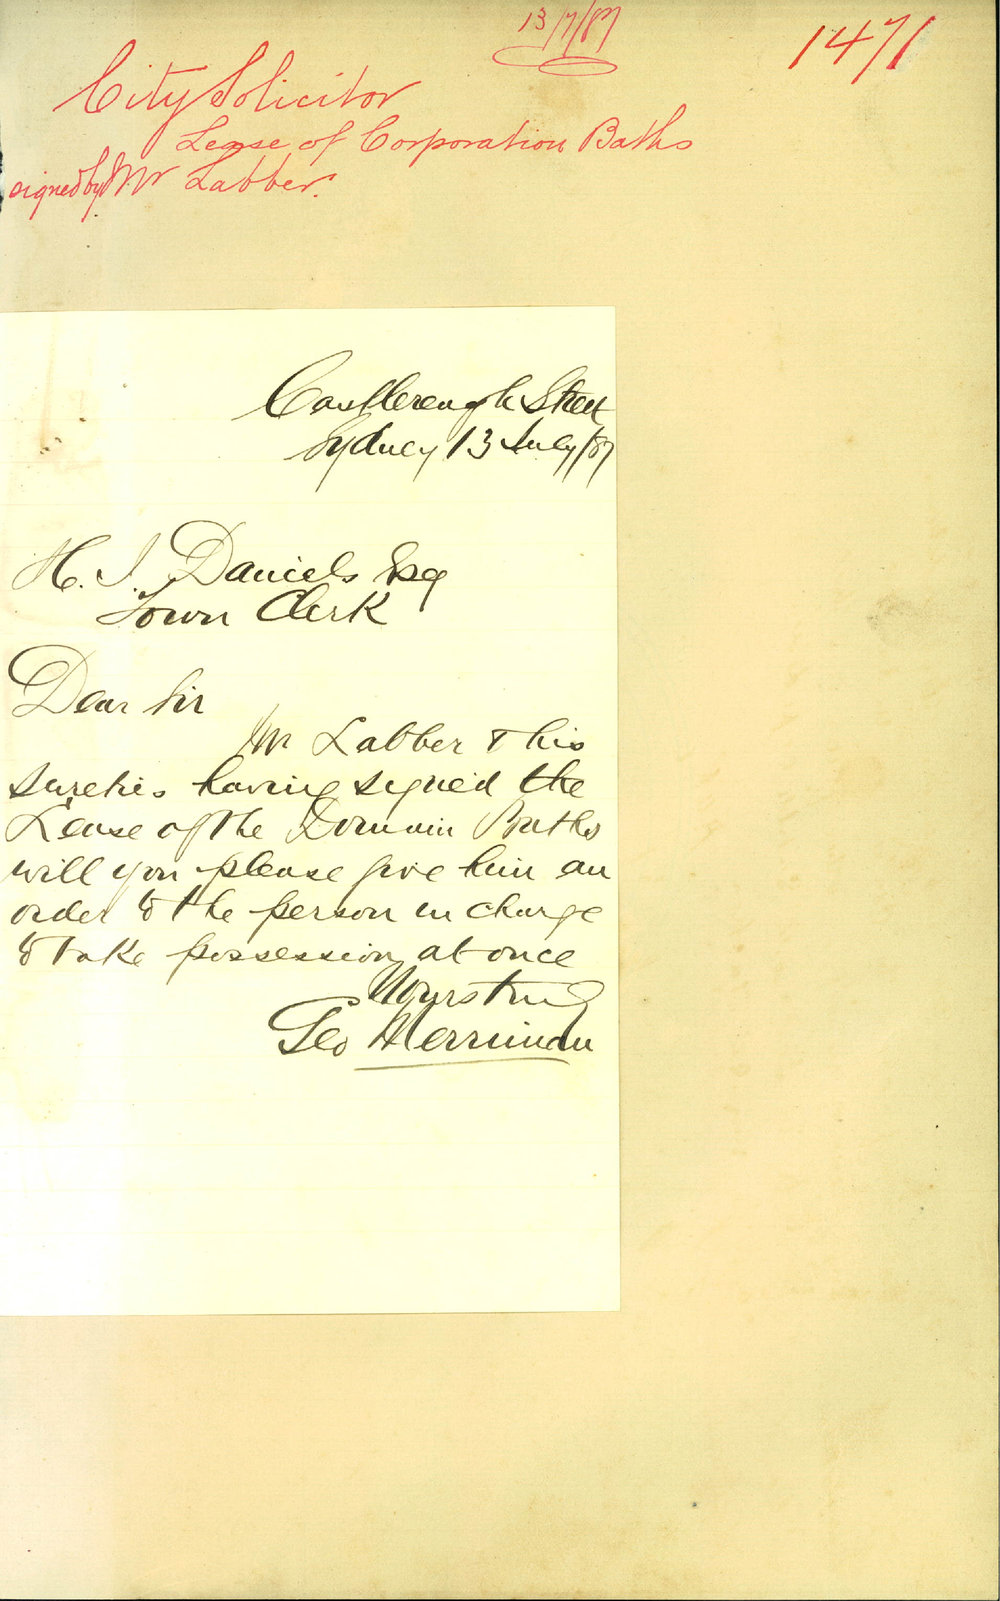 13/7/87
1471
City Solicitor
Lease of Corporation Baths
signed by Mr Labber.
Castlereagh Street
Sydney 13 July/87
H. J. Daniels Esq
Town Clerk
Dear Sir
Mr Labber & his
sureties having signed the
Lease of the Domain Baths
will you please give him an
order to the person in charge
to take possession at once
Yours truly
Geo Merriman